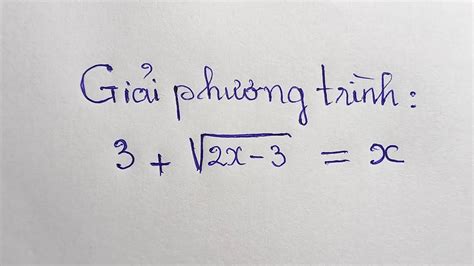 Giải phương trình:
3 + √2x-3 = x